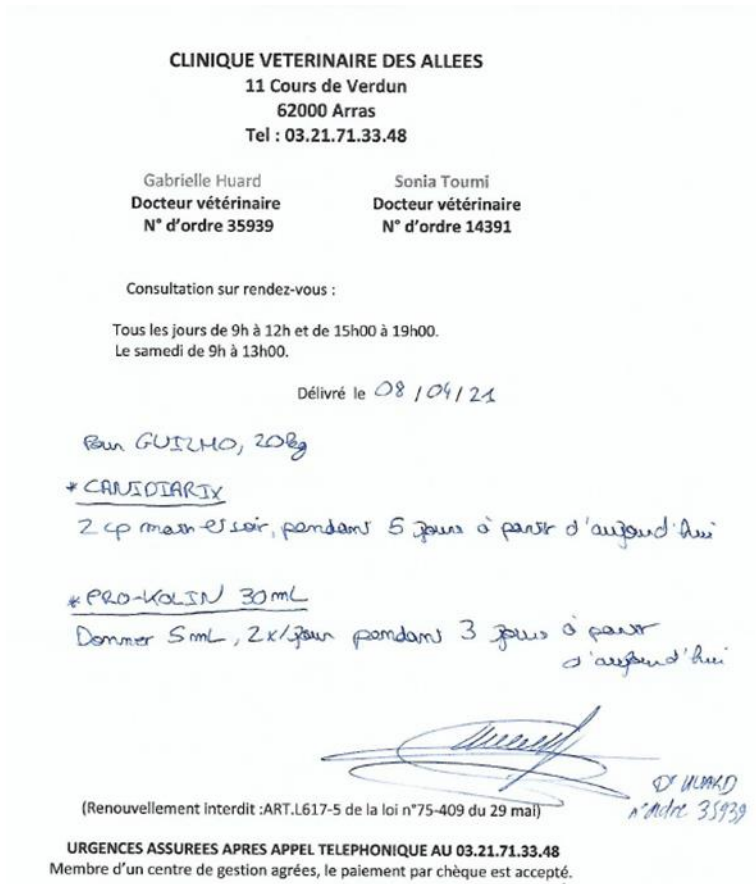 CLINIQUE VETERINAIRE DES ALLEES
11 Cours de Verdun
62000 Arras
Tel : 03.21.71.33.48
Gabrielle Huard Sonia Toumi
Docteur vétérinaire Docteur vétérinaire
N° d'ordre 35939 N° d'ordre 14391
Consultation sur rendez-vous :
Tous les jours de 9h à 12h et de 15h00 à 19h00.
Le samedi de 9h à 13h00.
Délivré le 08/04/21
Pour GUIZMO, 20kg
* CANIDIARIX
2 cp matin et soir, pendant 5 jours à partir d'aujourd'hui
* PRO-KOLIN 30mL
Donner 5mL, 2x/jour pendant 3 jours à partir
d'aujourd'hui
Dr HUARD
n°ordre 35939
(Renouvellement interdit :ART.L617-5 de la loi n°75-409 du 29 mai)
URGENCES ASSUREES APRES APPEL TELEPHONIQUE AU 03.21.71.33.48
Membre d'un centre de gestion agrées, le paiement par chèque est accepté.